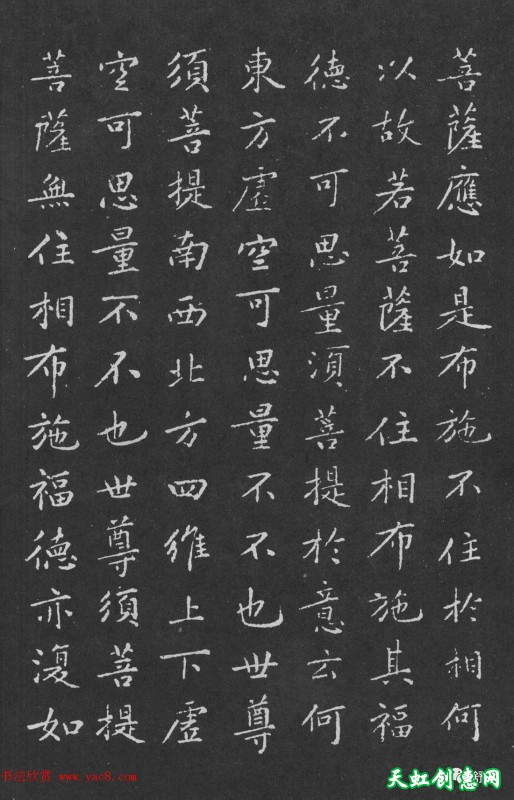 菩薩應如是布施不住於相何
以故若菩薩不住相布施其福
德不可思量須菩提於意云何
東方虛空可思量不不也世尊
須菩提南西北方四維上下虛
空可思量不不也世尊須菩提
菩薩無住相布施福德亦復如
书法欣赏 www.yac8.com
天虹创意网